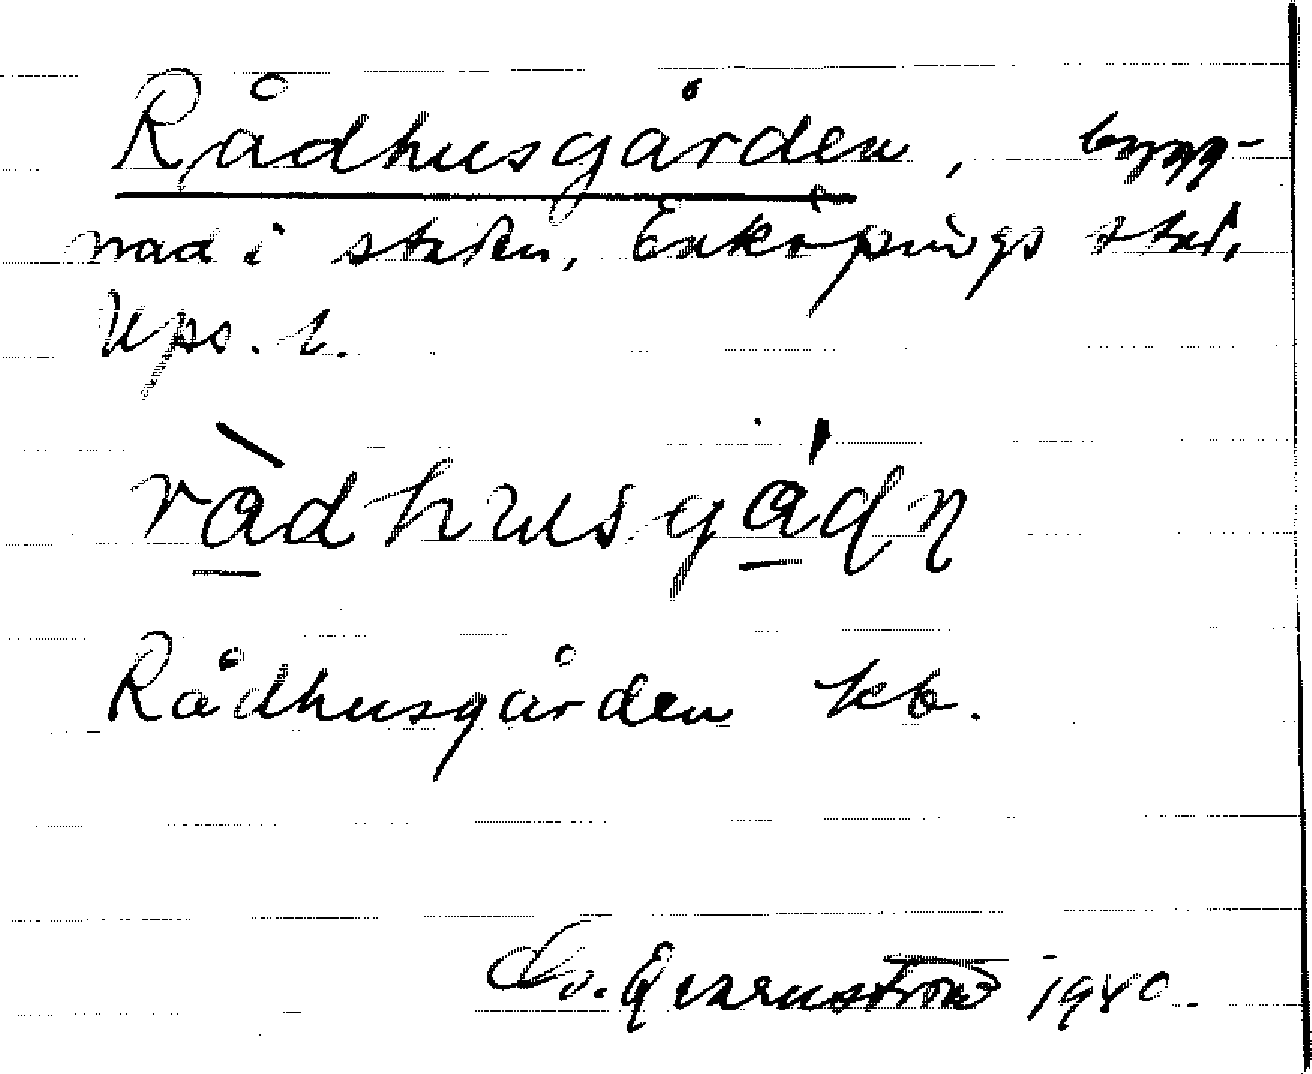 Rådhusgården, bygg-
nad i staden, Enköpings stad,
Ups. l.
rà̱dhusgá̱dn
Rådhusgården kb.
Qvarnström 1940.